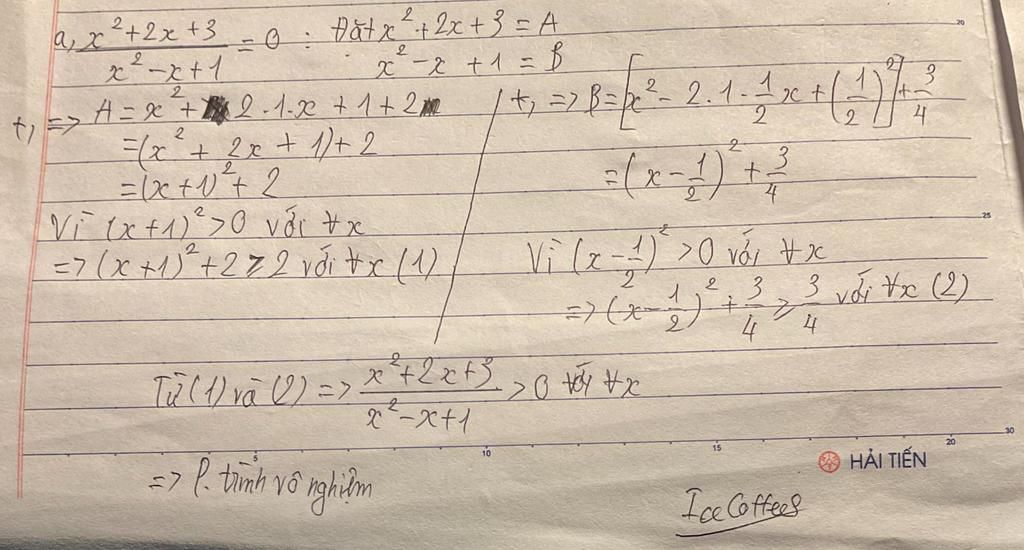 a, x²+2x+3 / x²-x+1 = 0 : Đặt x²+2x+3 = A
x²-x+1 = B
t, => A = x² + 2.1.x + 1 + 2
= (x² + 2x + 1) + 2
= (x+1)² + 2
Vì (x+1)² > 0 với ∀x
=> (x+1)² + 2 ≥ 2 với ∀x (1)
t, => B = [x² - 2.1.1/2x + (1/2)²] + 3/4
= (x - 1/2)² + 3/4
Vì (x - 1/2)² > 0 với ∀x
=> (x - 1/2)² + 3/4 ≥ 3/4 với ∀x (2)
Từ (1) và (2) => x²+2x+3 / x²-x+1 > 0 với ∀x
=> P. trình vô nghiệm
20
25
5 10 15 20 30
HẢI TIẾN
Ice Coffees